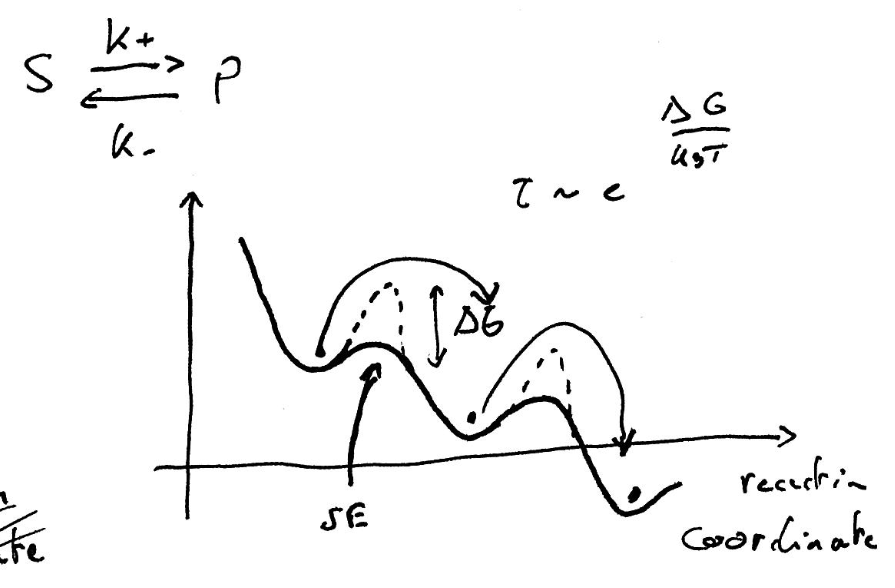 S ⇌ P
k+
k-
τ ~ e^(ΔG/k_BT)
ΔG
SE
reaction
coordinate